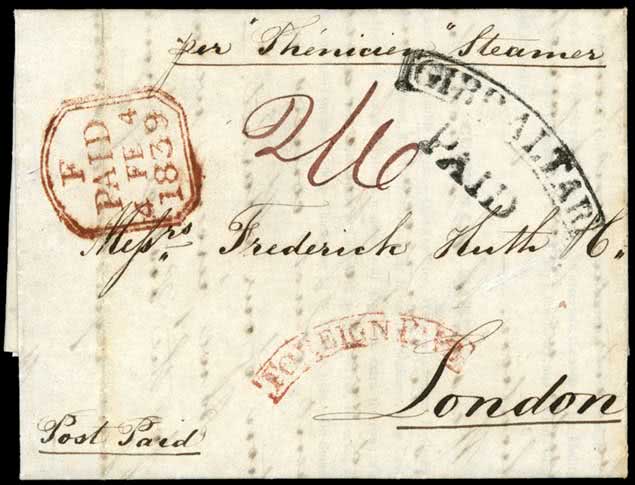 per "Thénicien" Steamer
GIBRALTAR
PAID
2/6
F
PAID
4 FE 4
1839
Messrs Frederick Huth & C,,
FOREIGN PAID
London
Post Paid